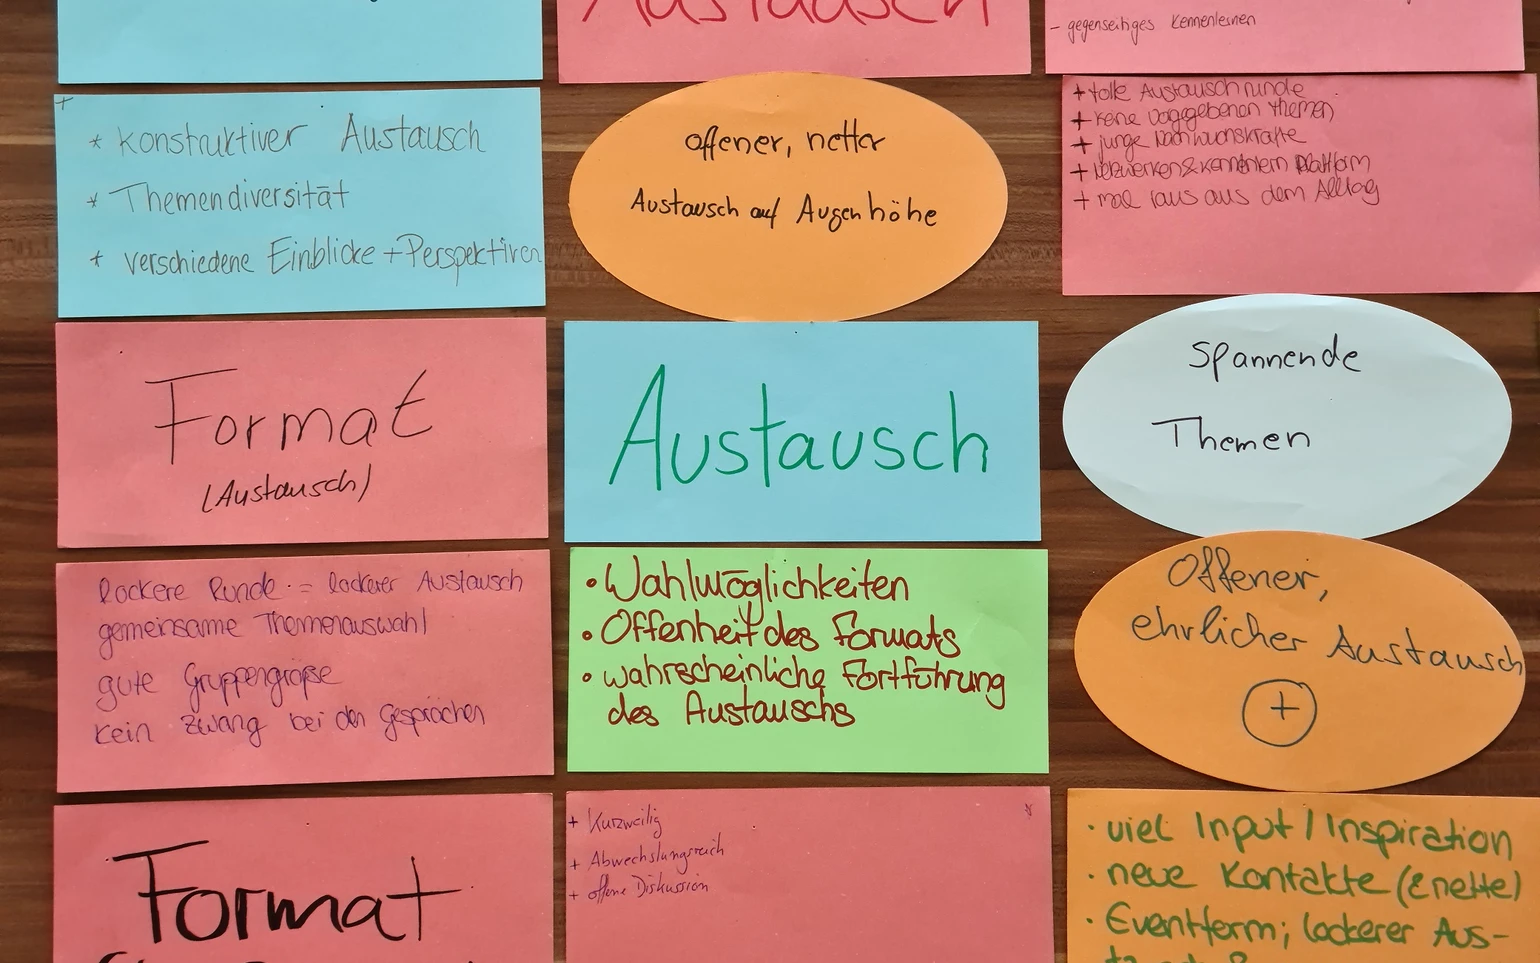 Austausch
- gegenseitiges Kennenlernen
* konstruktiver Austausch
* Themendiversität
* verschiedene Einblicke + Perspektiven
offener, netter
Austausch auf Augenhöhe
+ tolle Austauschrunde
+ keine vorgegebenen Themen
+ junge Nachwuchskräfte
+ Netzwerken & kennenlern Plattform
+ mal raus aus dem Alltag
Format
(Austausch)
Austausch
Spannende
Themen
lockere Runde = lockerer Austausch
gemeinsame Themenauswahl
gute Gruppengröße
kein Zwang bei den Gesprächen
• Wahlmöglichkeiten
• Offenheit des Formats
• wahrscheinliche Fortführung
des Austauschs
Offener,
ehrlicher Austausch
+
Format
+ Kurzweilig
+ Abwechslungsreich
+ offene Diskussion
· viel Input / Inspiration
· neue Kontakte (& nette)
· Eventform; lockerer Aus-